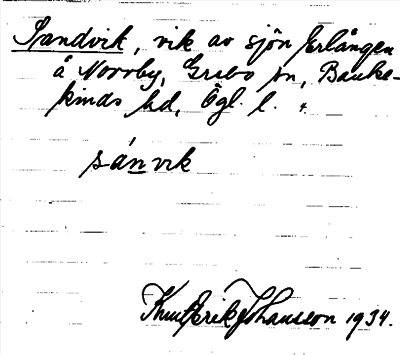 Sandvik, vik av sjön Erlången
å Norrby, Grebo sn, Banke-
kinds hd, Ögl. l.
sánvik
Knut Erik Johansson 1934.